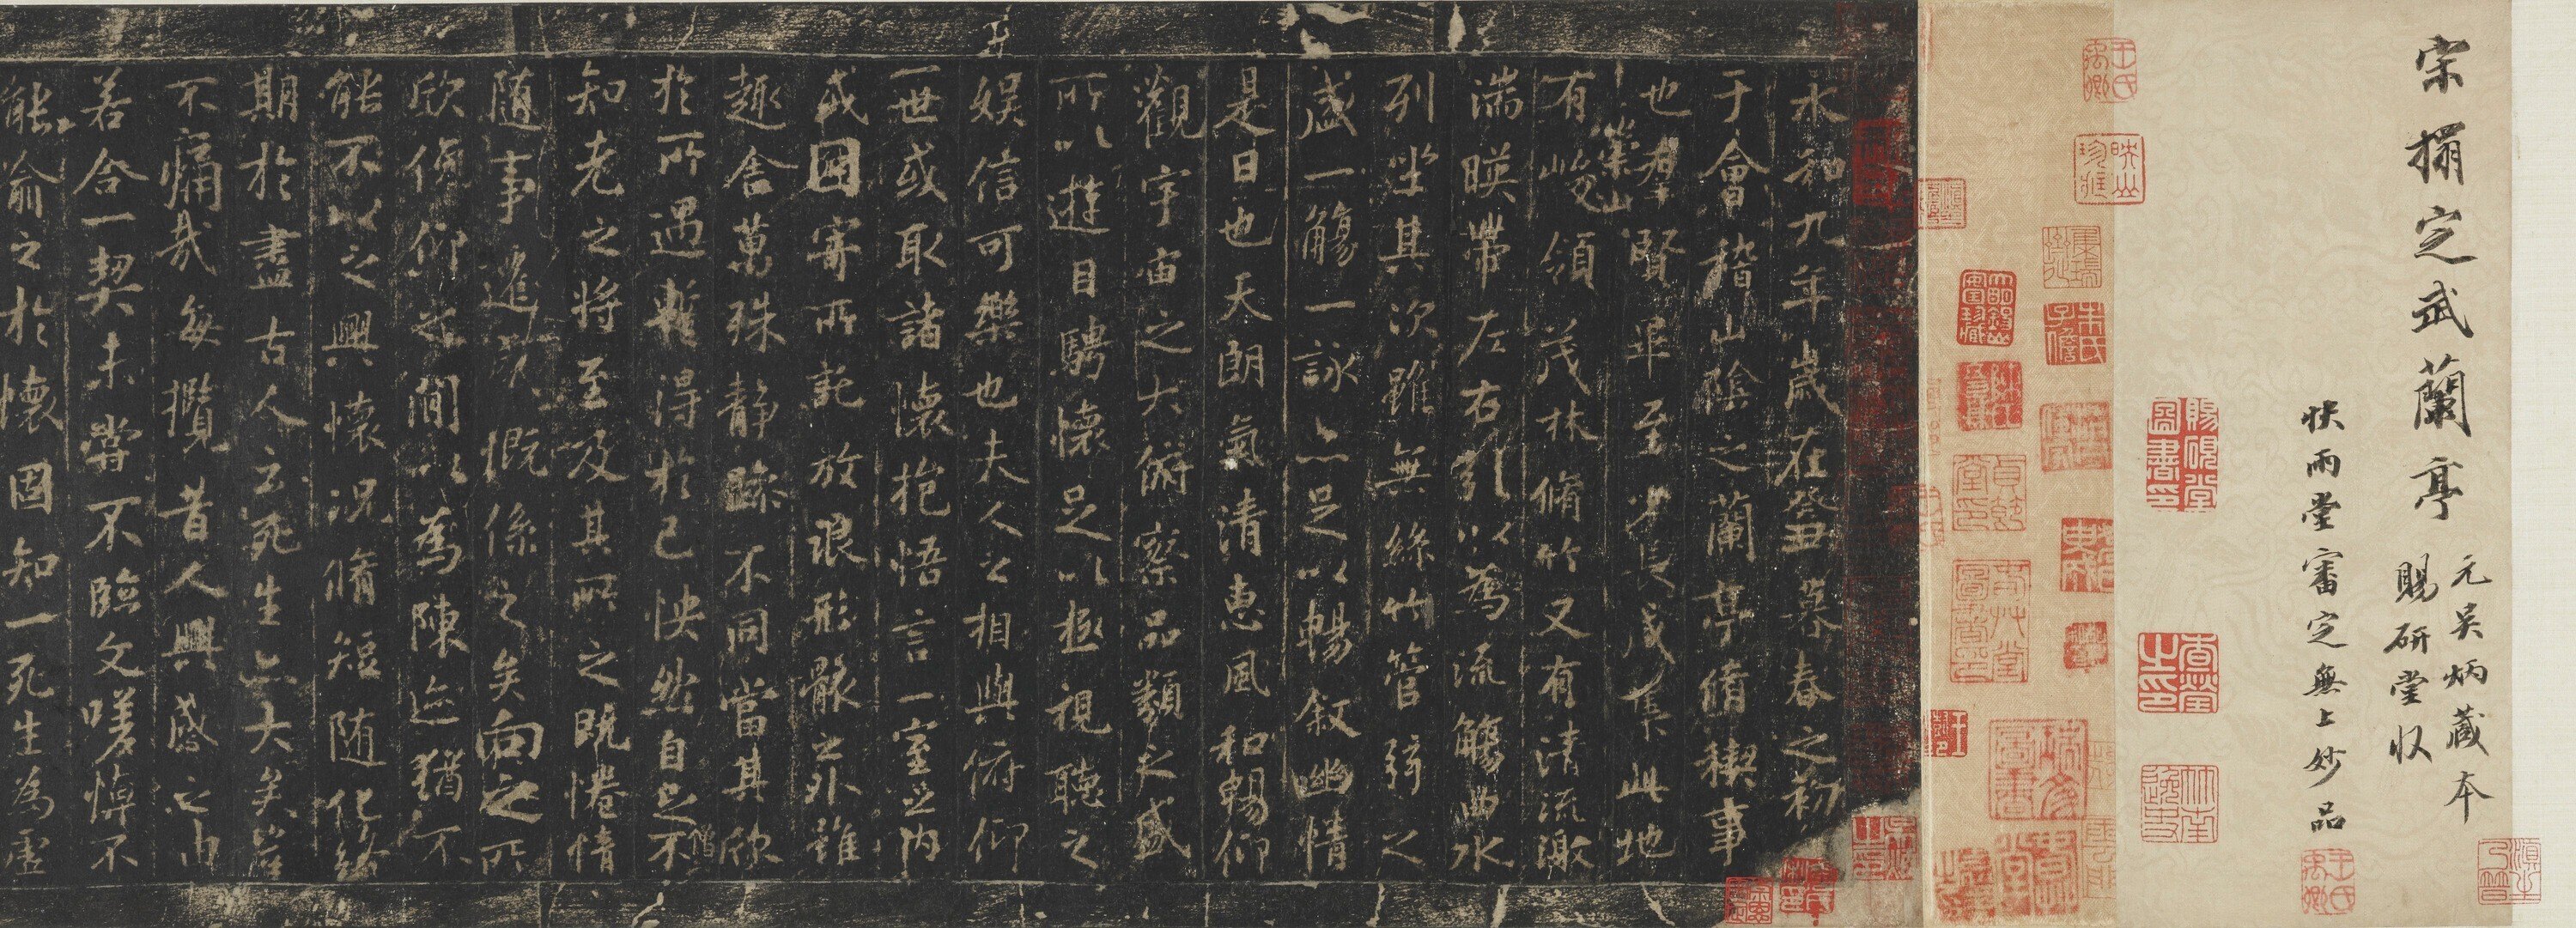 宋搨定武蘭亭
元吳炳藏本
賜研堂收
快雨堂審定無上妙品
賜硯堂圖書印
永和九年歲在癸丑暮春之初
于會稽山陰之蘭亭脩稧事
也羣賢畢至少長咸集此地
有崇山峻領茂林脩竹又有清流激
湍暎帶左右引以為流觴曲水
列坐其次雖無絲竹管弦之
盛一觴一詠亦足以暢叙幽情
是日也天朗氣清惠風和暢仰
觀宇宙之大俯察品類之盛
所以遊目騁懷足以極視聽之
娛信可樂也夫人之相與俯仰
一世或取諸懷抱悟言一室之內
或因寄所託放浪形骸之外雖
趣舍萬殊靜躁不同當其欣
於所遇暫得於己怏然自足不
僧
知老之將至及其所之既惓情
隨事遷感慨係之矣向之所
欣俛仰之間以為陳迹猶不
能不以之興懷況脩短隨化終
期於盡古人云死生亦大矣豈
不痛哉每攬昔人興感之由
若合一契未嘗不臨文嗟悼不
能喻之於懷固知一死生為虛